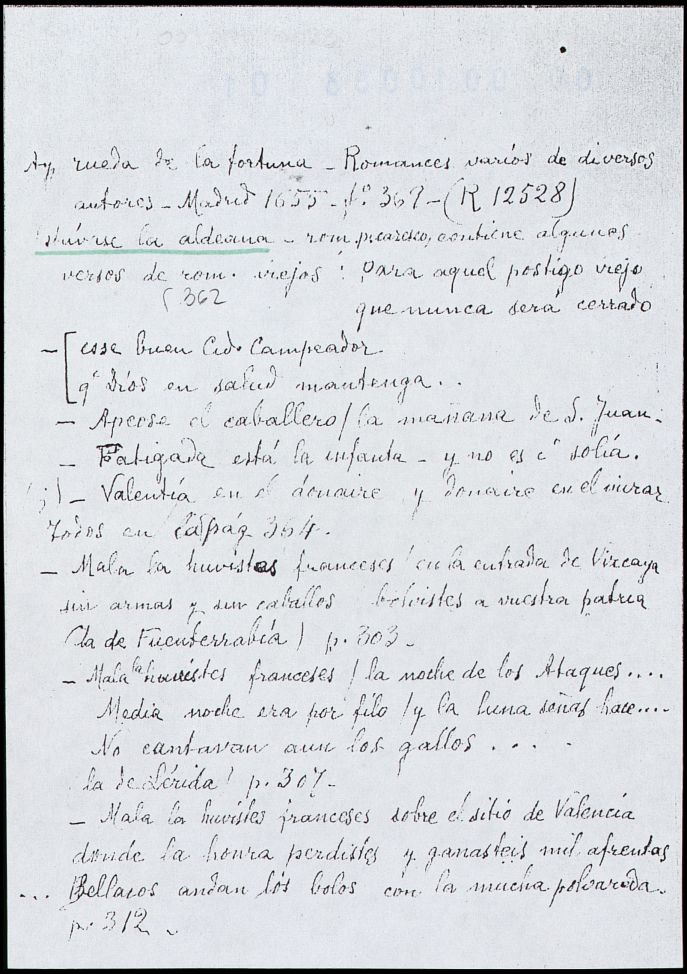 Ay, rueda de la fortuna - Romances varios de diversos
autores - Madrid 1655 - fº 367 - (R 12528)
la aldeana - rom. picaresco, contiene algunos
versos de rom. viejos : Para aquel postigo viejo
( 362 que nunca será cerrado
- [ esse buen Cid Campeador
qe Dios en salud mantenga . .
- Apeose el caballero / la mañana de S. Juan -
- Fatigada está la infanta - y no es cº solía.
- Valentía en el donaire y donaire en el mirar
Todos en la pág 364.
- Mala la huvistes franceses / en la entrada de Vizcaya
sin armas y sin caballos bolvistes a vuestra patria
(la de Fuenterrabía) p. 303 -
- Mala la huvistes franceses / la noche de los Ataques....
Media noche era por filo / y la luna señas hace....
No cantavan aun los gallos . . . .
(la de Lérida) p. 307 -
- Mala la huvistes franceses sobre el sitio de Valencia
donde la honra perdistes y ganasteis mil afrentas
... Bellacos andan los bolos con la mucha polvareda.
p. 312 -